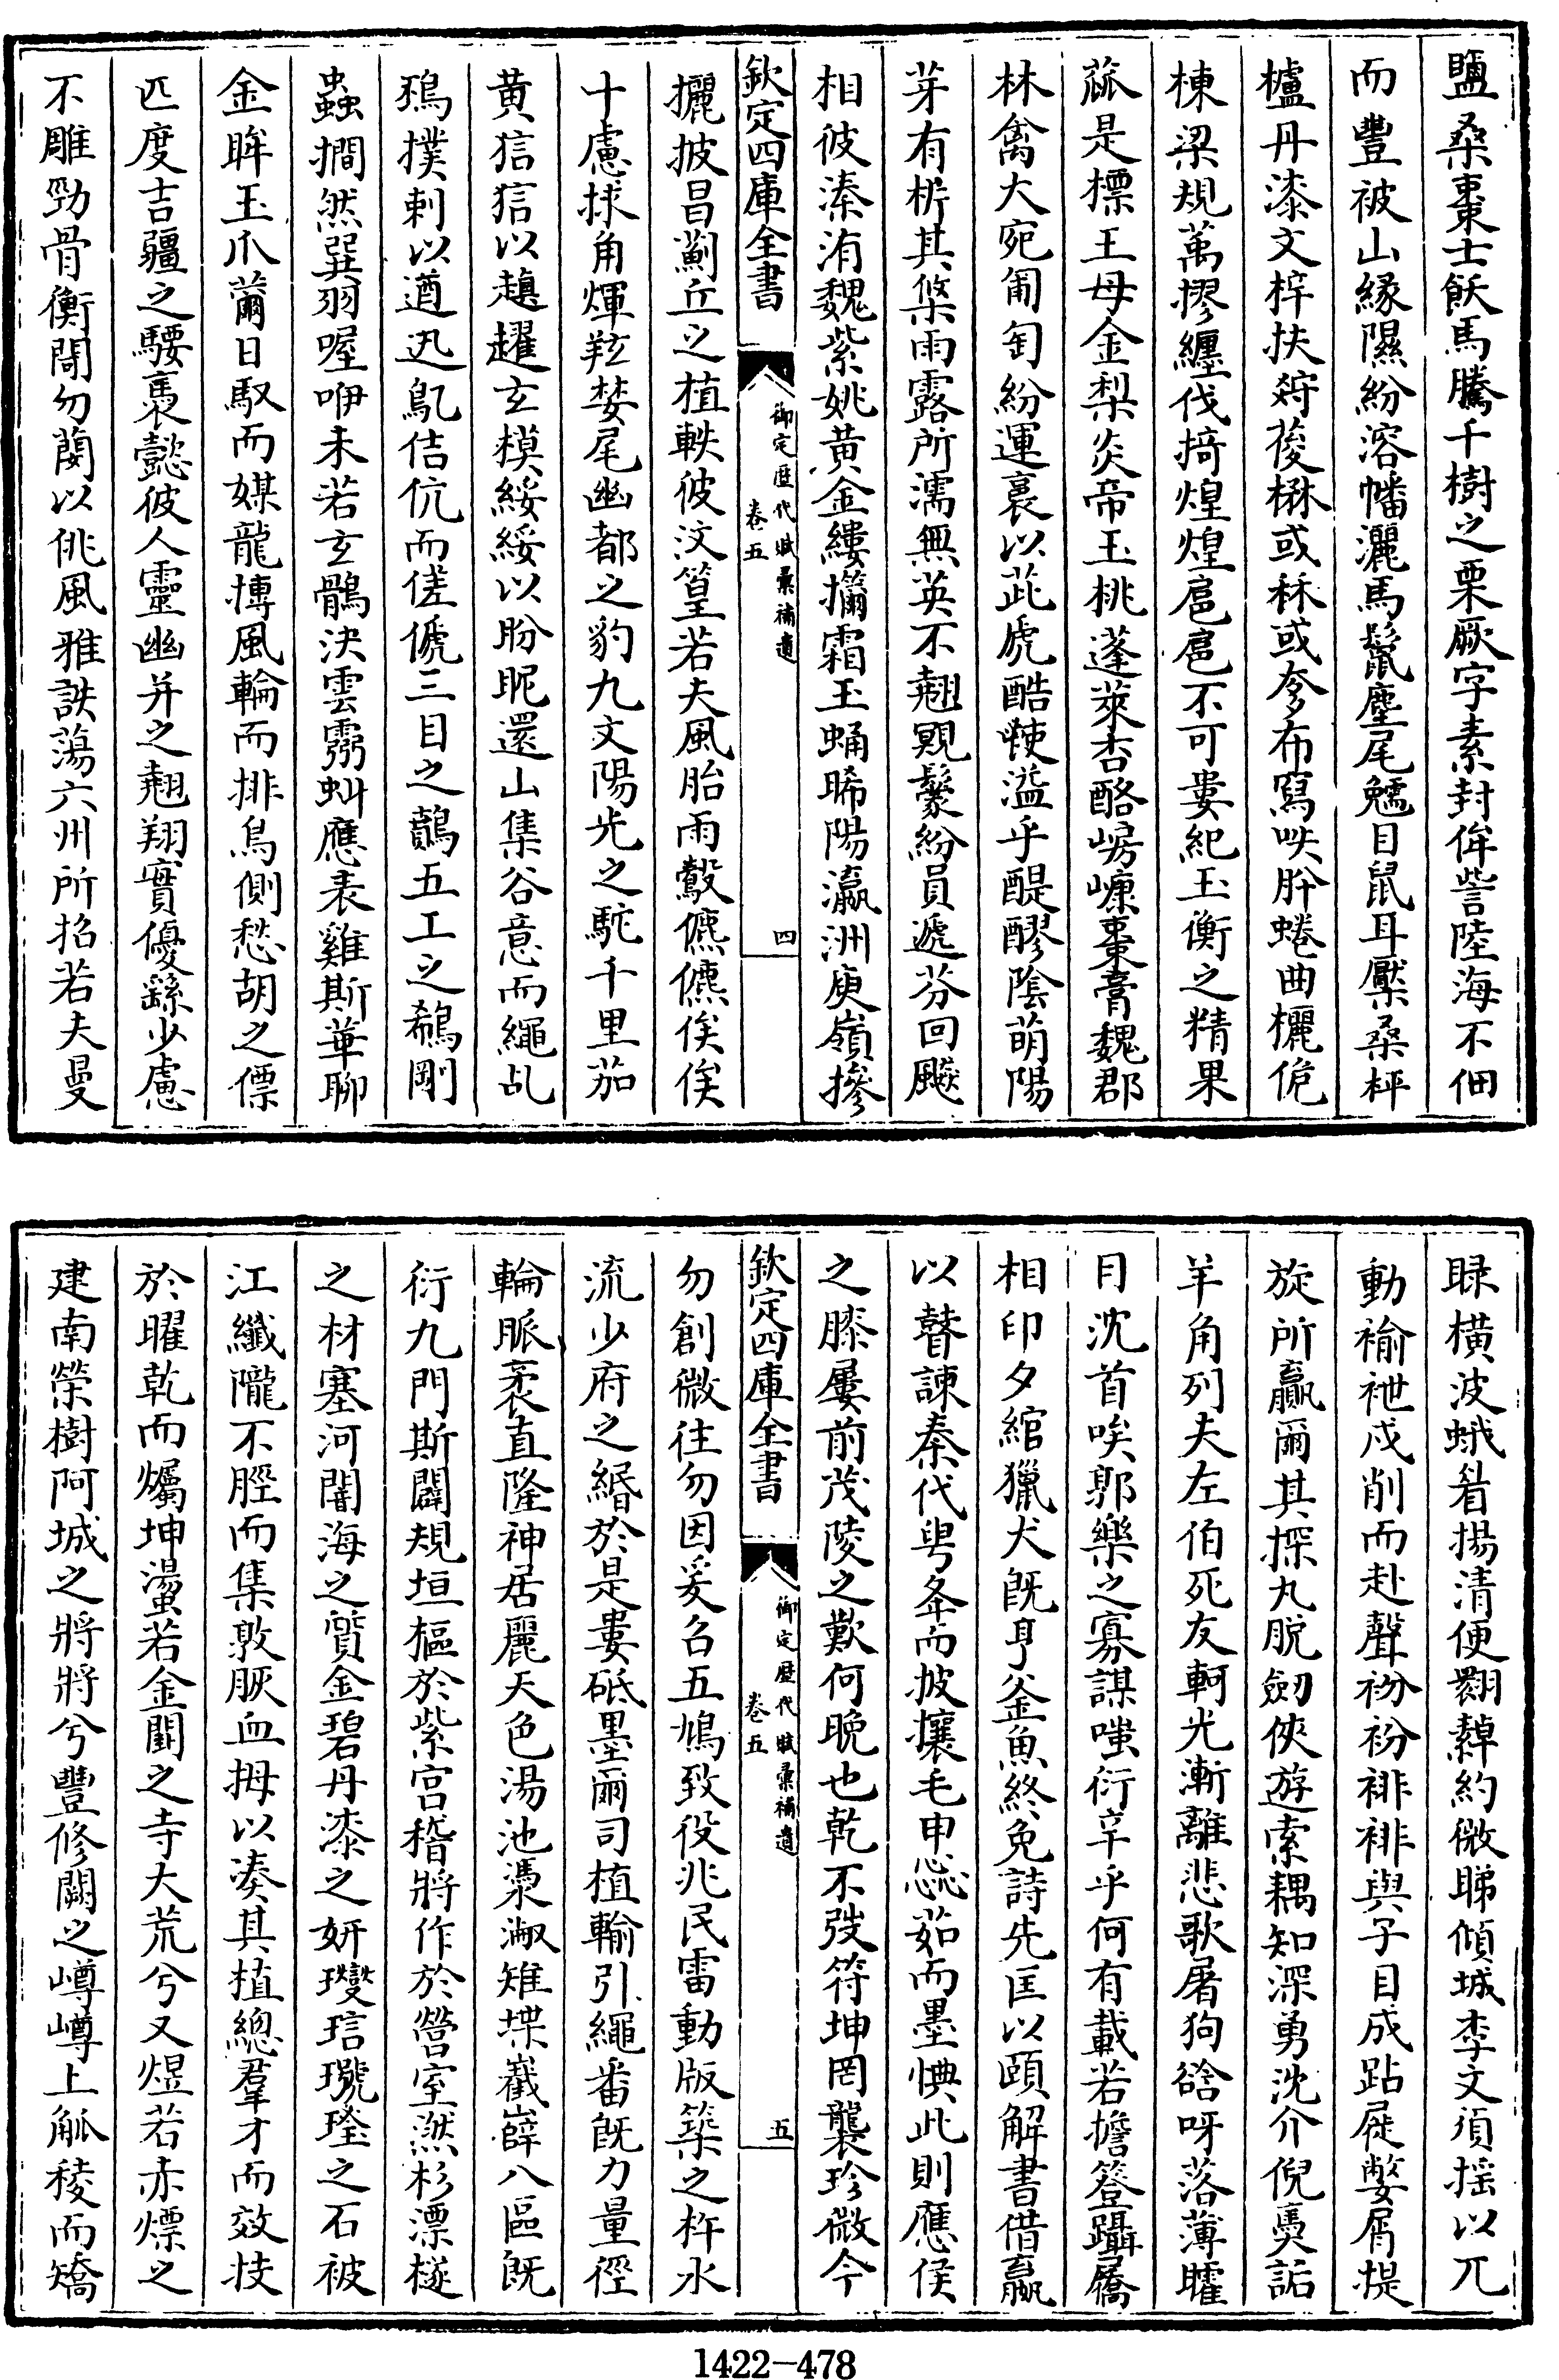 鹽桑棗士飫馬騰千樹之栗厥字素封侔訾陸海不佃
而豐被山緣隰紛溶幡灑馬鬣麈尾魷目鼠耳檿桑枰
櫨丹漆文梓扶㭙葰楙或秝或夛布寫呹肸蜷曲欐佹
棟梁規萬摎纏伐掎煌煌扈扈不可婁紀玉衡之精果
蓏是標王母金梨炎帝玉桃蓬萊杏酪崵嵻棗膏魏郡
林禽大宛匍匐紛運裛以茈虒酷𣤶溢乎醍醪陰萌陽
芽有析其榘雨露所濡無英不翹覭髳紛員遞芬回飈
相彼溱洧魏紫姚黃金縷擟霜玉蛹晞陽瀛洲庾嶺摻
欽定四庫全書
御定歷代賦彙補遺
卷五
四
攦披昌薊丘之植軼彼汶篁若夫風胎雨鷇儦儦俟俟
十慮捄角煇羬婪尾幽都之豹九文陽光之駝千里茄
黃狺狺以趮趯玄模綏綏以肦眤還山集谷意而繩乩
鵶撲刺以遒迅鳦佶伉而傞傂三目之鷬五工之鵗剛
蟲撊然巽羽喔咿未若玄鶻決雲霛虯應表雞斯華聊
金眸玉爪薾日馭而媒龍摶風輪而排鳥側愁胡之僄
匹度吉疆之騕褭懿彼人靈幽并之翹翔實優繇少慮
不雕勁骨衡閜勿蔄以佻風雅詄蕩六州所招若夫曼
睩橫波蛾眉揚清便翾𦅻約微睇傾城李文須搖以兀
動褕袣戍削而赴聲衯衯裶裶與子目成跕屣嫳屑提
旋所贏爾其探丸脫劒俠遊索耦知深勇沈介倪㚟詬
羊角列夫左伯死友軻光漸離悲歌屠狗谽呀落薄矐
目沈首唉郭樂之寡謀嗤衍辛乎何有載若擔簦躡屩
相印夕綰獵犬旣亨釜魚終免詩先匡以頤解書借嬴
以瞽諫秦代粤夅而披攘毛申慫茹而墨惉此則應侯
之膝屢前茂陵之歎何晚也乾不弢符坤罔襲珍微今
欽定四庫全書
御定歷代賦彙補遺
卷五
五
勿創微往勿因爰名五鳩致役兆民雷動版築之杵水
流少府之緡於是婁砥墨爾司植輸引繩番旣力量徑
輪脈袤直隆神居麗天色湯池潗漵雉堞嶻嶭八區旣
衍九門斯闢規垣樞於紫宮稽將作於營室㵄杉漂檖
之材塞河闇海之質金碧丹漆之妍璎琂瓏琻之石被
江纖隴不脛而集敦脄血拇以湊其植總羣才而效技
於曜乾而爥坤盪若金闈之寺大荒兮又煜若赤熛之
建南榮樹阿城之將將兮豐修闕之嶟嶟上觚稜而矯
1422-478